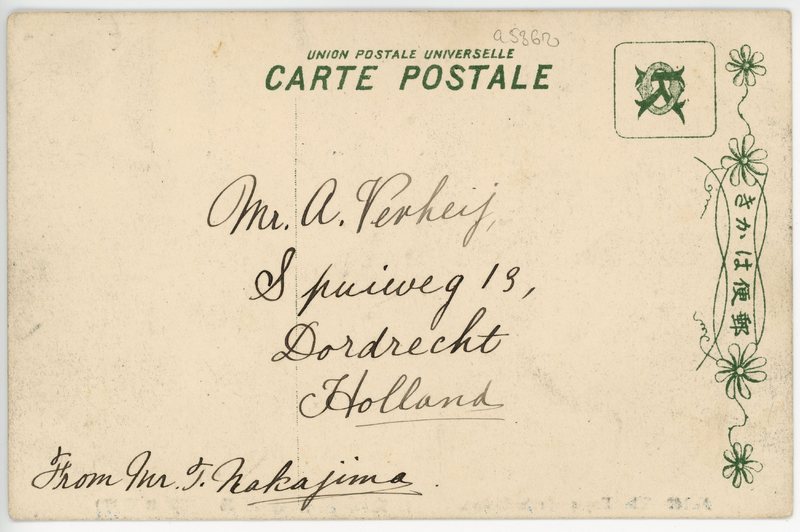 a5862
UNION POSTALE UNIVERSELLE
CARTE POSTALE
きかは便郵
Mr. A. Verheij,
Spuiweg 13,
Dordrecht
Holland
From Mr. T. Nakajima.